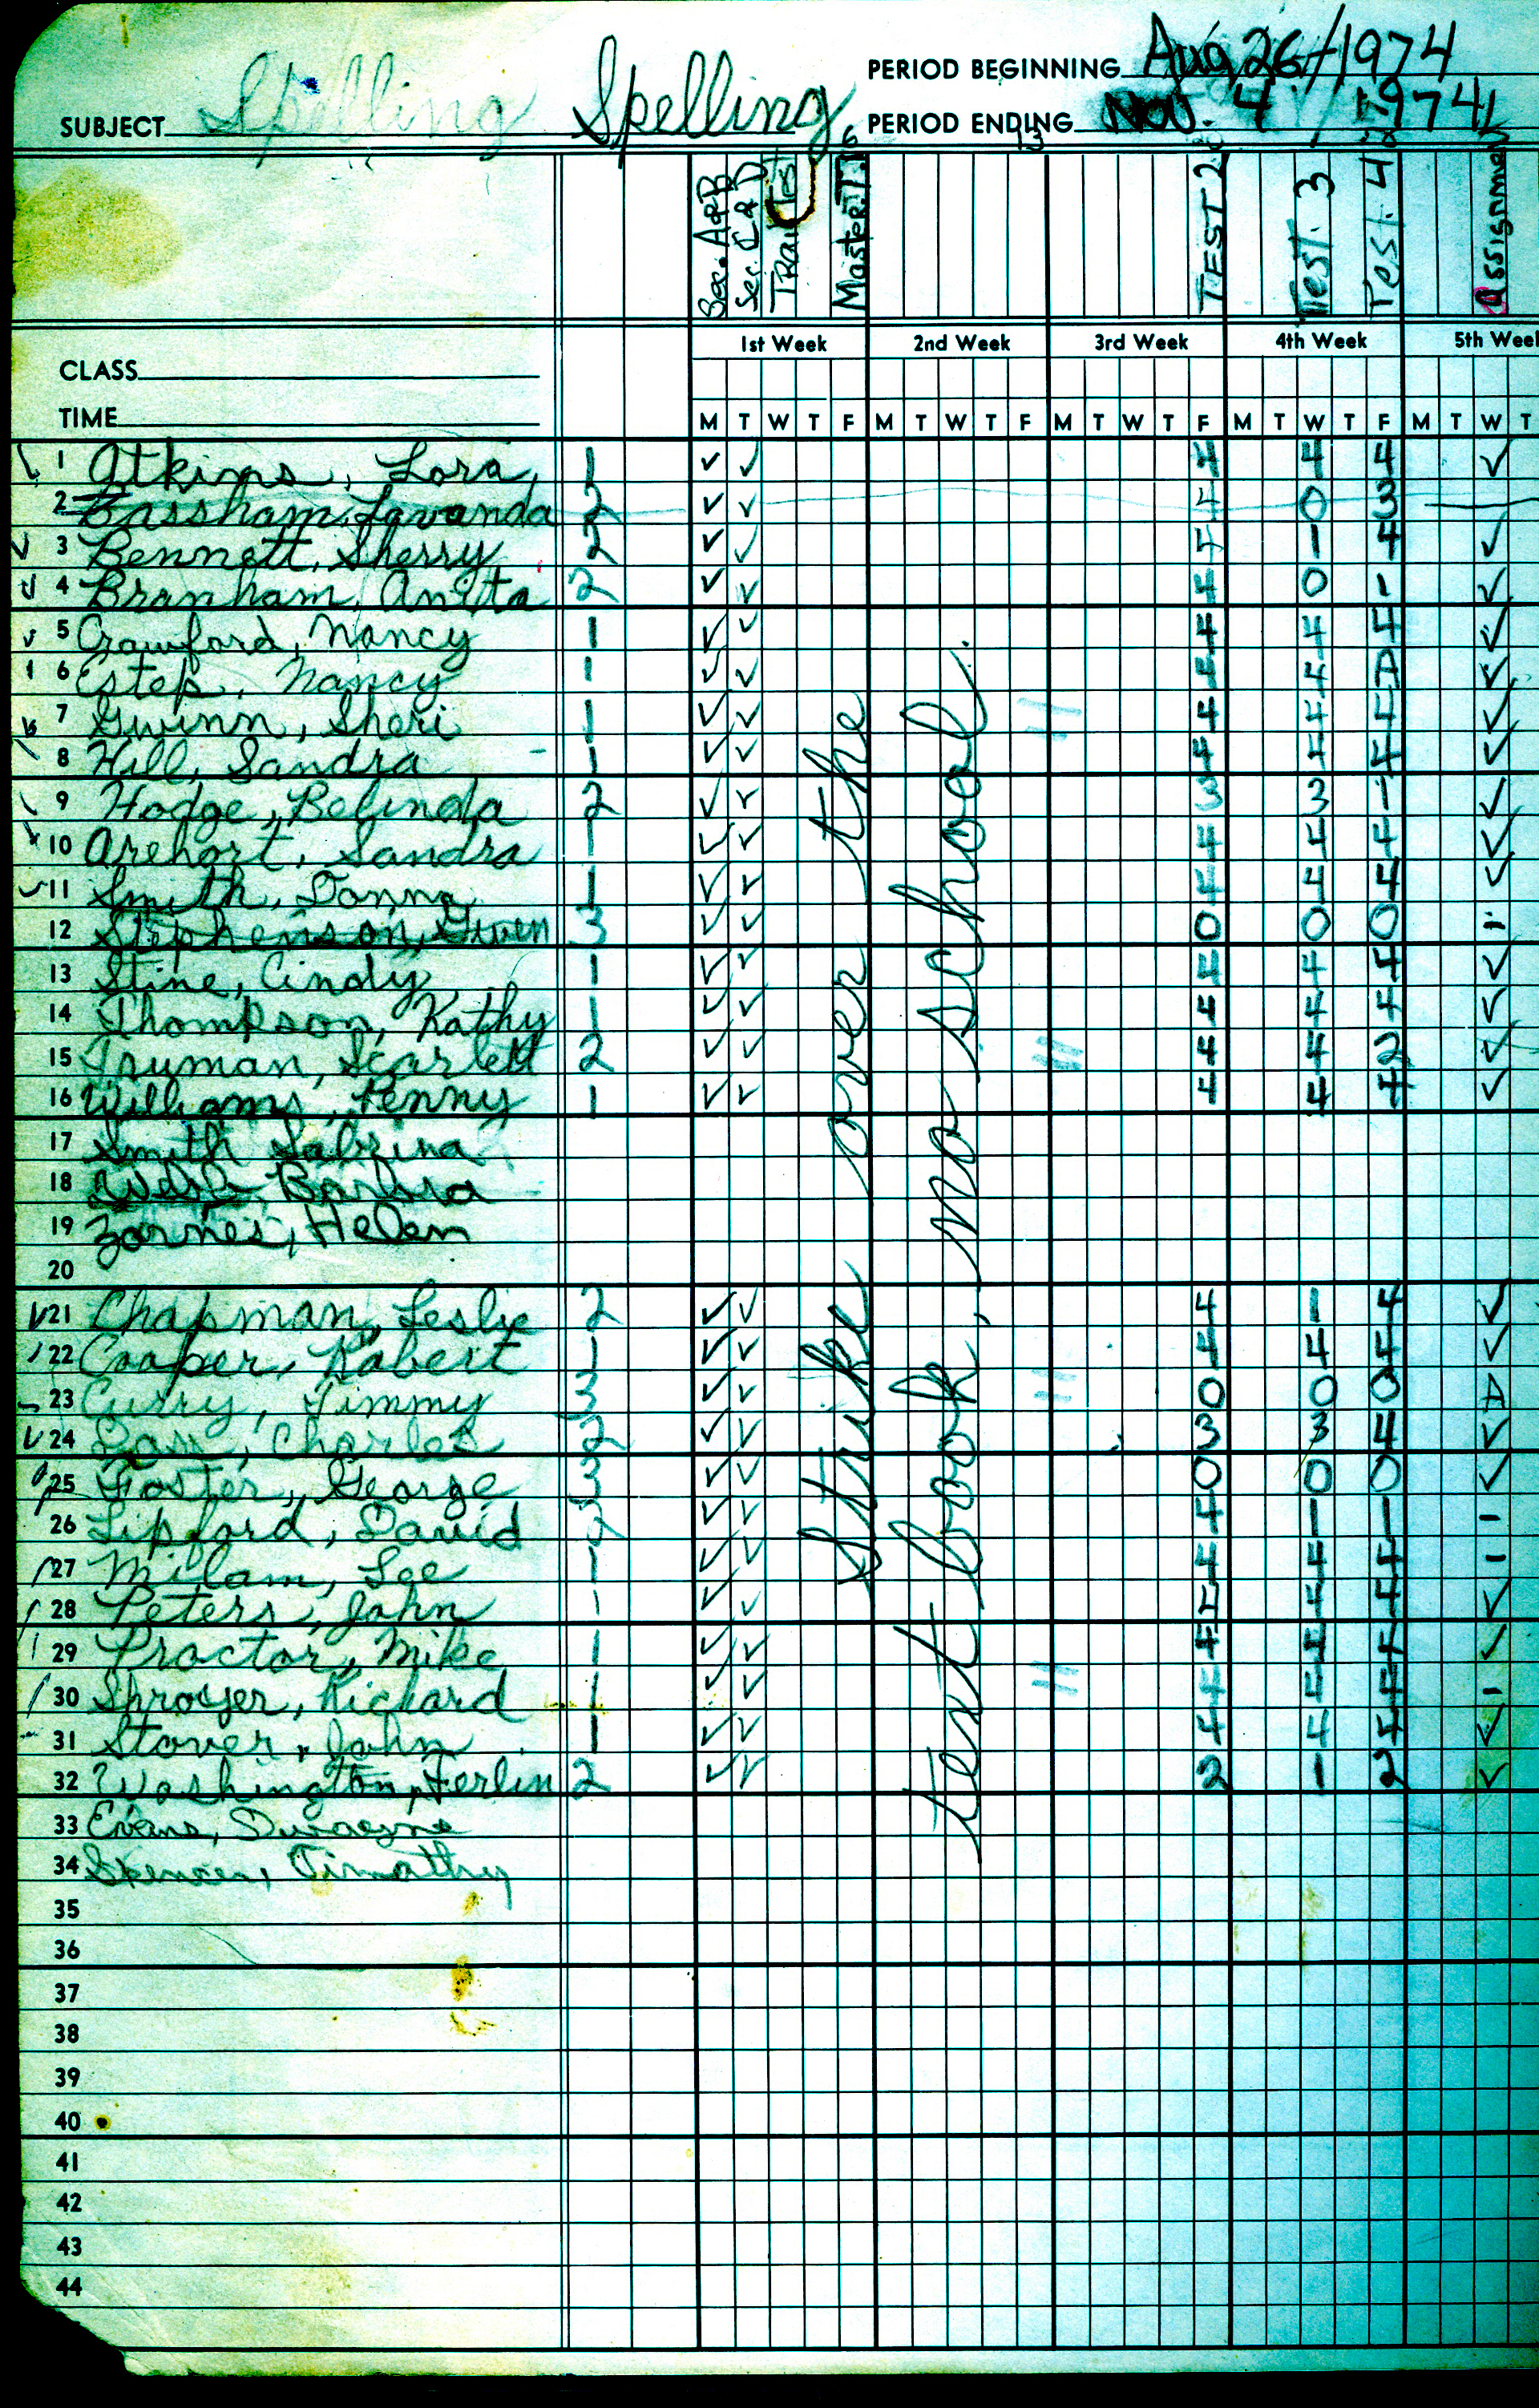 PERIOD BEGINNING Aug 26/1974
SUBJECT Spelling Spelling PERIOD ENDING Nov. 4 / 1974
13
Sec. A&B
Sec. C&D
Trail Test
Master T. 6
TEST 2
Test. 3
Test. 4
Assignment
1st Week 2nd Week 3rd Week 4th Week 5th Week
CLASS
TIME M T W T F M T W T F M T W T F M T W T F M T W T
1 Atkins, Lora 1 ✓ ✓ 4 4 4 ✓
2 Bassham, Lavanda 2 ✓ ✓ 4 0 3
3 Bennett, Sherry 2 ✓ ✓ 4 1 4 ✓
4 Branham, Anita 2 ✓ ✓ 4 0 1 ✓
5 Crawford, Nancy 1 ✓ ✓ 4 4 4 ✓
6 Estep, Nancy 1 ✓ ✓ 4 4 A ✓
7 Gwinn, Sheri 1 ✓ ✓ 4 4 4 ✓
8 Hill, Sandra 1 ✓ ✓ 4 4 4 ✓
9 Hodge, Belinda 2 ✓ ✓ 3 3 1 ✓
10 Arehart, Sandra 1 ✓ ✓ 4 4 4 ✓
11 Smith, Donna 1 ✓ ✓ 4 4 4 ✓
12 Stephenson, Gwen 3 ✓ ✓ 0 0 0
13 Stine, Cindy 1 ✓ ✓ 4 4 4 ✓
14 Thompson, Kathy 1 ✓ ✓ 4 4 4 ✓
15 Truman, Scarlett 2 ✓ ✓ 4 4 2 ✓
16 Williams, Penny 1 ✓ ✓ 4 4 4 ✓
17 Smith Sabrina
18 Barbra
19 Zornes, Helen
20
21 Chapman, Leslie 2 ✓ ✓ 4 1 4 ✓
22 Cooper, Robert 1 ✓ ✓ 4 4 4 ✓
23 Curry, Jimmy 3 ✓ ✓ 0 0 0
24 Charles 2 ✓ ✓ 3 3 4 ✓
25 Foster, George 3 ✓ ✓ 0 0 0 ✓
26 Lipford, David 2 ✓ ✓ 4 1 1 -
27 Milam, Lee 1 ✓ ✓ 4 4 4 -
28 Peters, John 1 ✓ ✓ 4 4 4 ✓
29 Proctor, Mike 1 ✓ ✓ 4 4 4 ✓
30 Shroyer, Richard 1 ✓ ✓ 4 4 4 -
31 Stover, John 1 ✓ ✓ 4 4 4 ✓
32 Washington, Ferlin 2 ✓ ✓ 2 1 2 ✓
33 Evans, Dwayne
34 Spencer, Timothy
35
36
37
38
39
40
41
42
43
44
Strike over the
text book, no school.